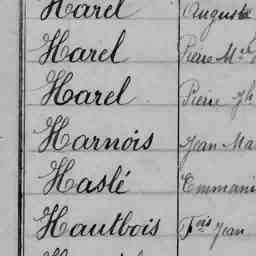 Harel Auguste
Harel Pierre M
Harel Pierre
Harnois Jean Ma
Haslé Emmanu
Hautbois Fois Jean